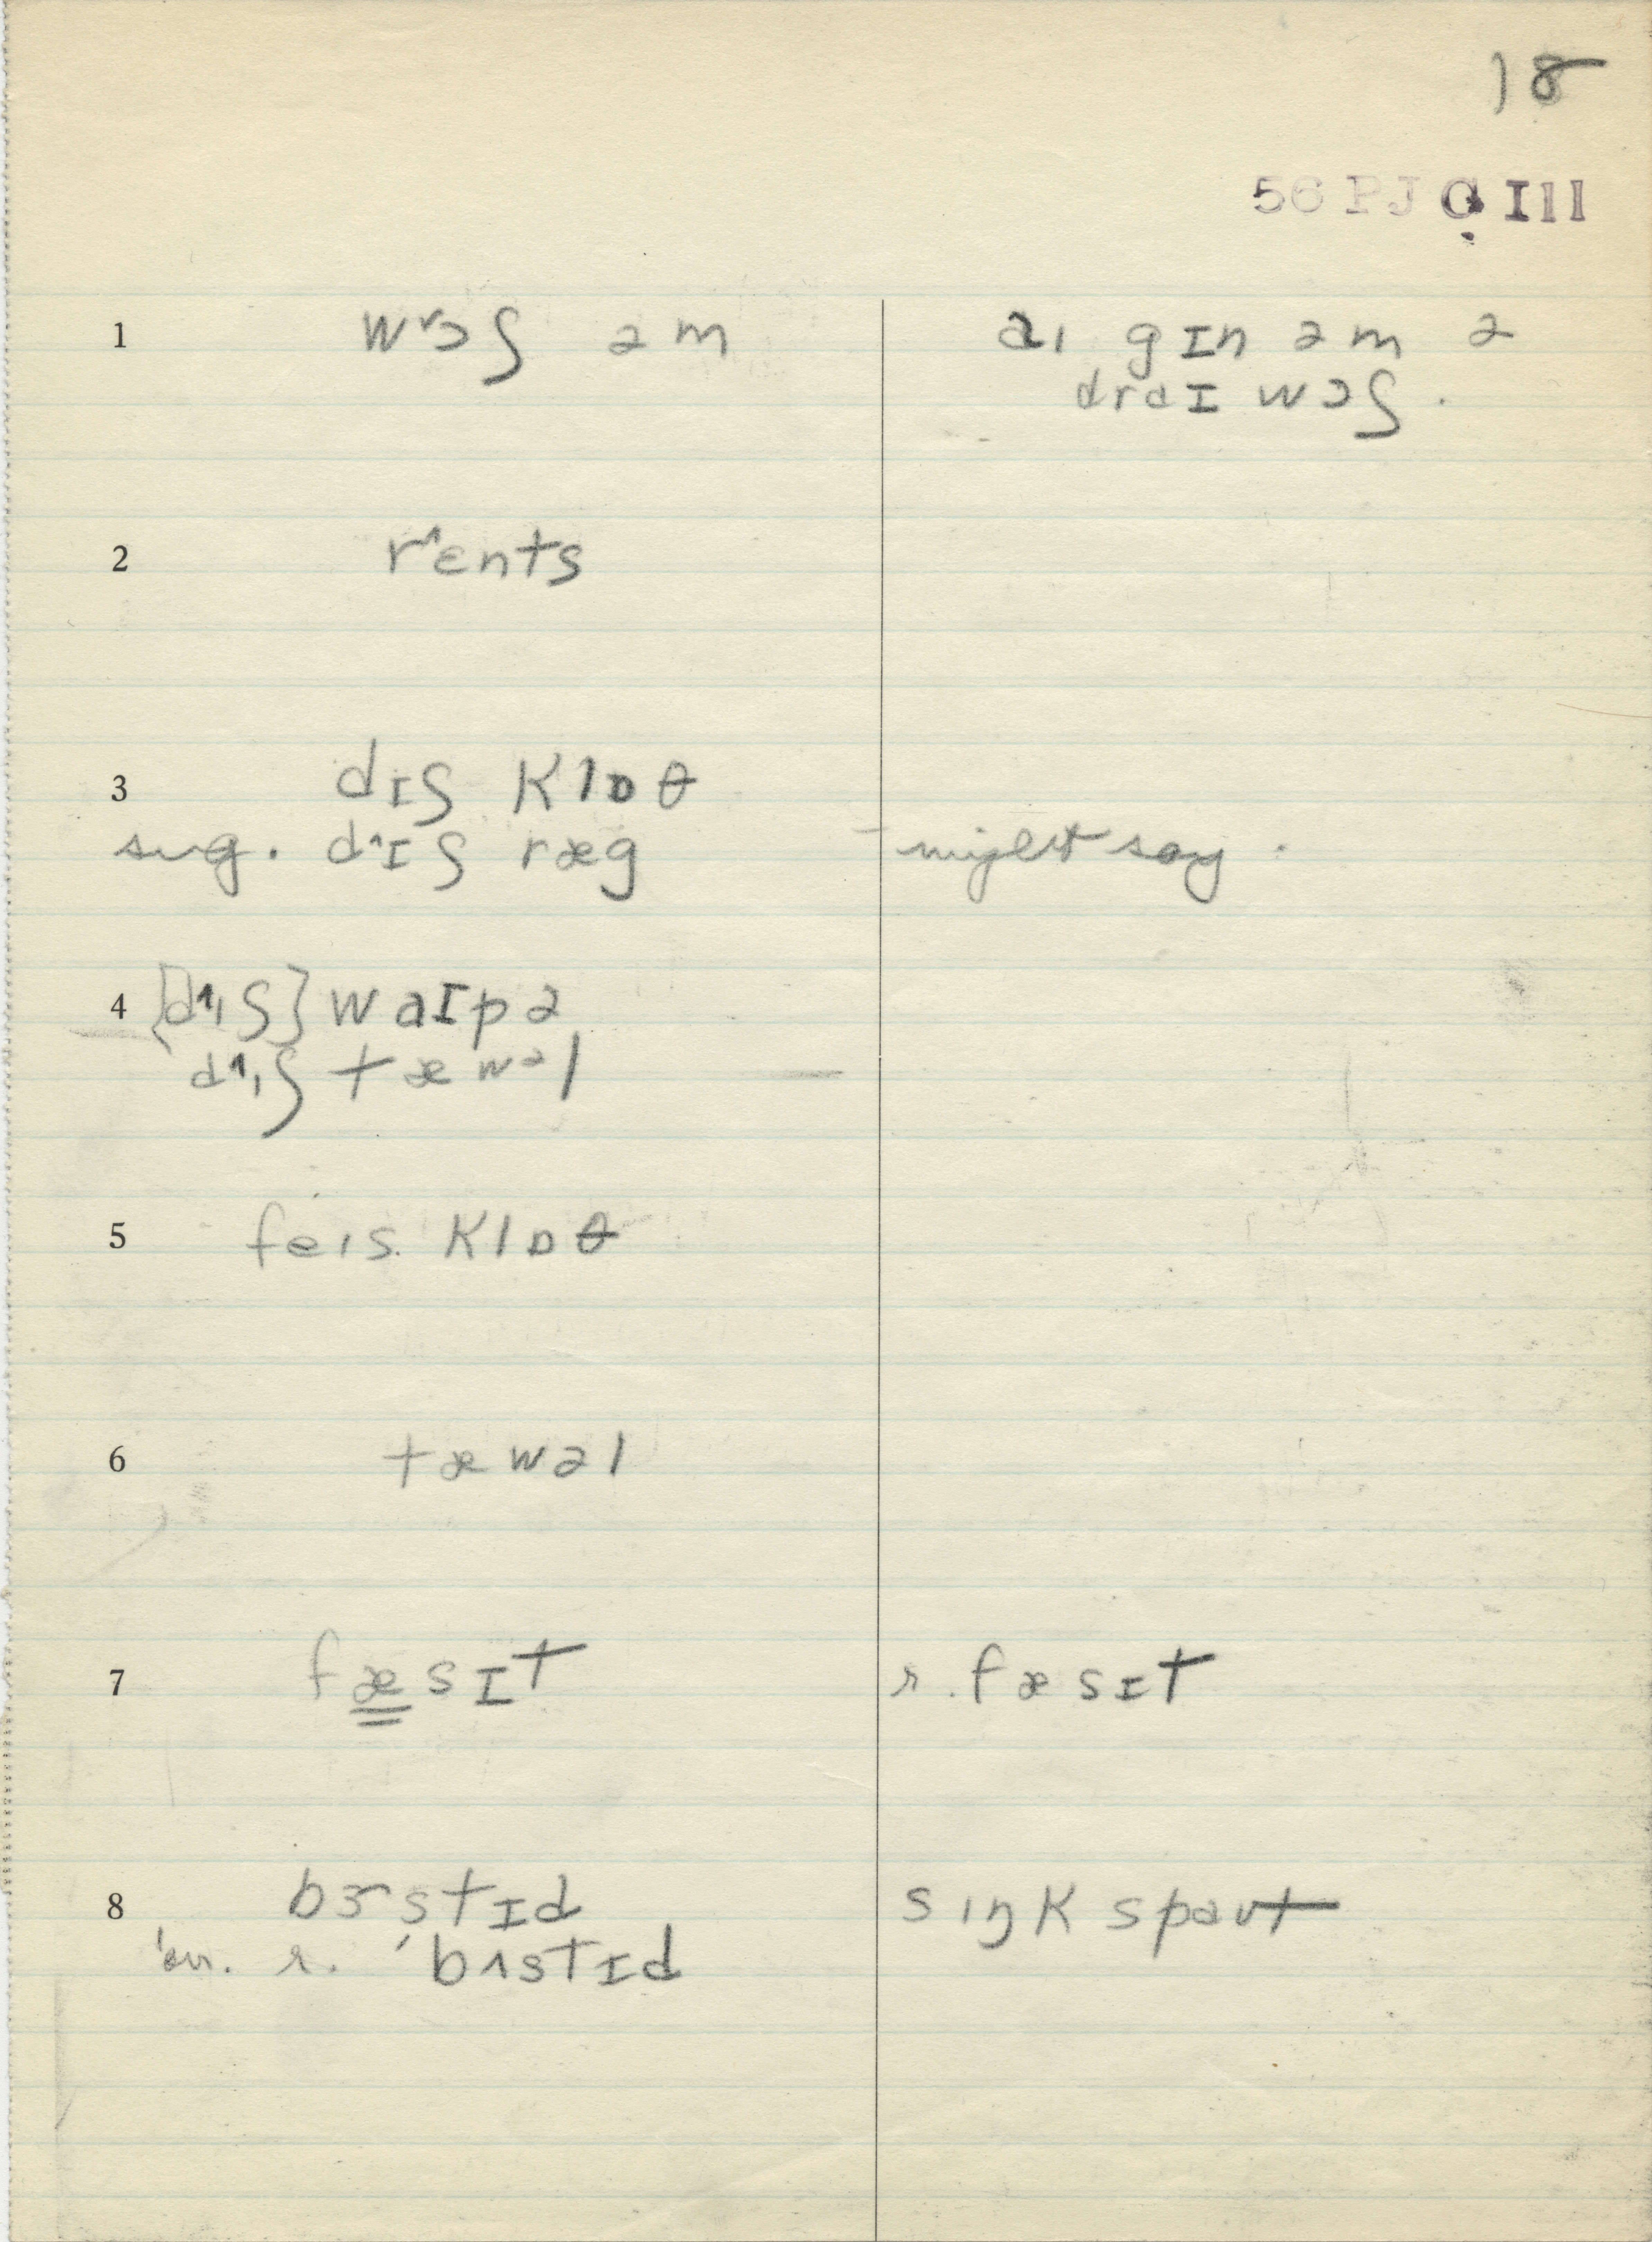 18
56 PJC Ill
1 wᵛɔʃ əm
aɪ gɪn əm ə
draɪ wɔʃ.
2 r˄ɛnts
3 dɪʃ klɒθ
sug. d˄ɪʃ ræg
– might say.
4 {d˄ɪʃ} waɪpə
d˄ɪʃ tæwəl
5 feɪs klɒθ
6 tæwəl
7 fæsɪt
r. fæsɪt
8 bɝstɪd
sɪŋk spaʊt
r. ˈbʌstɪd